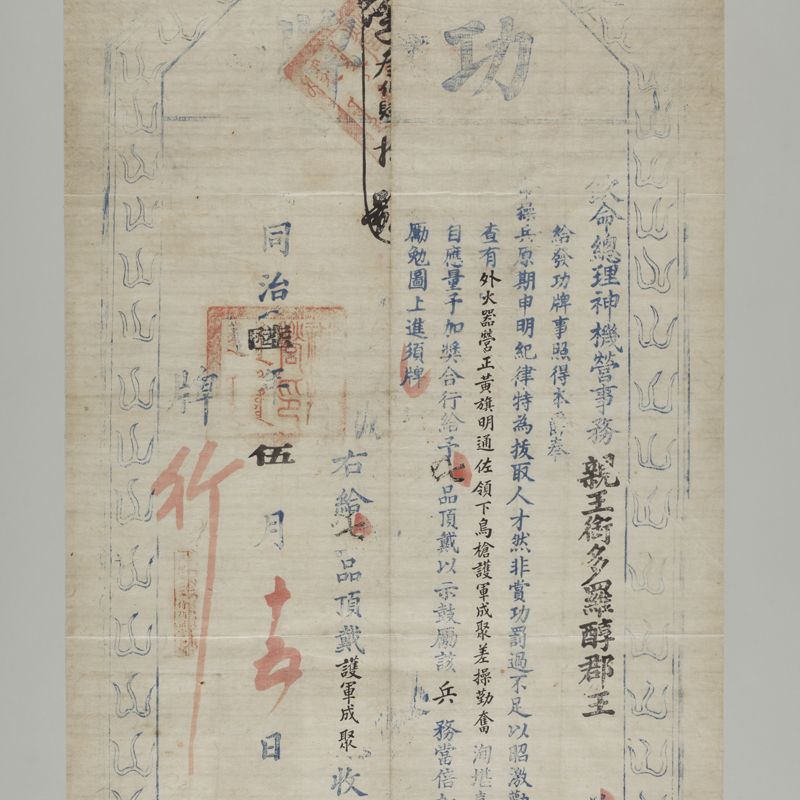 功
欽命總理神機營事務親王銜多羅醇郡王
給發功牌事照得本爵奉
操兵原期申明紀律特為拔取人才然非賞功罰過不足以昭激勸
查有外火器營正黃旗明通佐領下鳥槍護軍成聚差操勤奮洵堪嘉
自應量予加獎合行給予七品頂戴以示鼓勵該兵務當倍加
勵勉圖上進須牌
右給七品頂戴護軍成聚收
同治陸年伍月十五日
牌
行